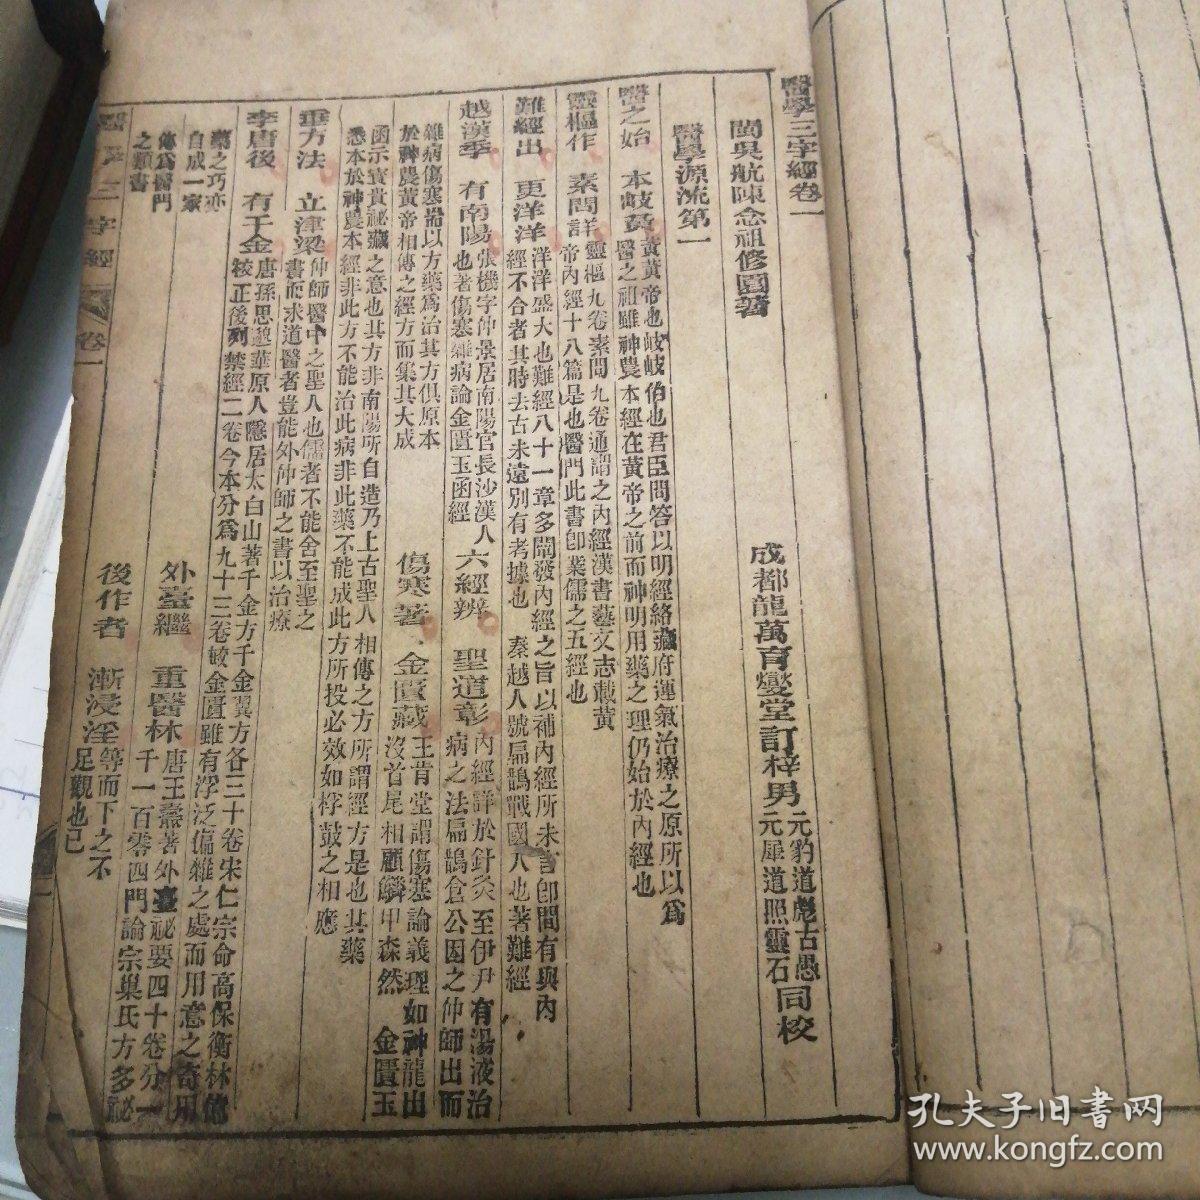 醫學三字經卷一
閩吳航陳念祖修園著
成都龍萬育燮堂訂梓男元豹道彪古愚元犀道照靈石同校
醫學源流第一
醫之始 本岐黃黃黃帝也岐岐伯也君臣問答以明經絡藏府運氣治療之原所以爲
醫之祖雖神農本經在黃帝之前而神明用藥之理仍始於內經也
靈樞作 素問詳靈樞九卷素問九卷通謂之內經漢書藝文志載黃
帝內經十八篇是也醫門此書卽業儒之五經也
難經出 更洋洋洋洋盛大也難經八十一章多闡發內經之旨以補內經所未言卽間有與內
經不合者其時去古未遠別有考據也 秦越人號扁鵲戰國人也著難經
越漢季 有南陽張機字仲景居南陽官長沙漢人
也著傷寒雜病論金匱玉函經
六經辨 聖道彰內經詳於針灸至伊尹有湯液治
病之法扁鵲倉公因之仲師出而
雜病傷寒耑以方藥爲治其方俱原本
於神農黃帝相傳之經方而集其大成
傷寒著 金匱藏王肯堂謂傷寒論義理如神龍出
沒首尾相顧鱗甲森然 金匱玉
函示寶貴祕藏之意也其方非南陽所自造乃上古聖人相傳之方所謂經方是也其藥
悉本於神農本經非此方不能治此病非此藥不能成此方所投必效如桴鼓之相應
垂方法 立津梁仲師醫中之聖人也儒者不能舍至聖之
書而求道醫者豈能外仲師之書以治療
李唐後 有千金唐孫思邈華原人隱居太白山著千金方千金翼方各三十卷宋仁宗命高保衡林億
校正後列禁經二卷今本分爲九十三卷較金匱雖有浮泛偏雜之處而用意之奇用
藥之巧亦
自成一家
外臺繼 重醫林唐王燾著外臺祕要四十卷分一
千一百零四門論宗巢氏方多祕
傳爲醫門
之類書
後作者 漸浸淫等而下之不
足觀也已
三字經
卷一
孔夫子旧書网
www.kongfz.com